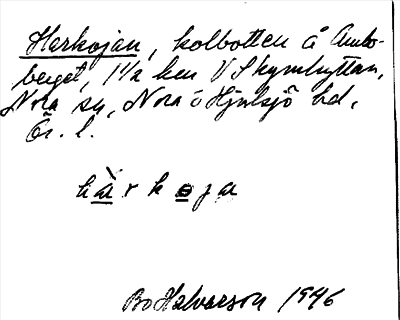 Harkojan, kolbotten å Ambo-
berget, 1 1/2 km V Skymhyttan,
Nora sn, Nora o Hjulsjö bd,
Ör. l.
hà̱rko̱ja
Bo Halvarson 1946